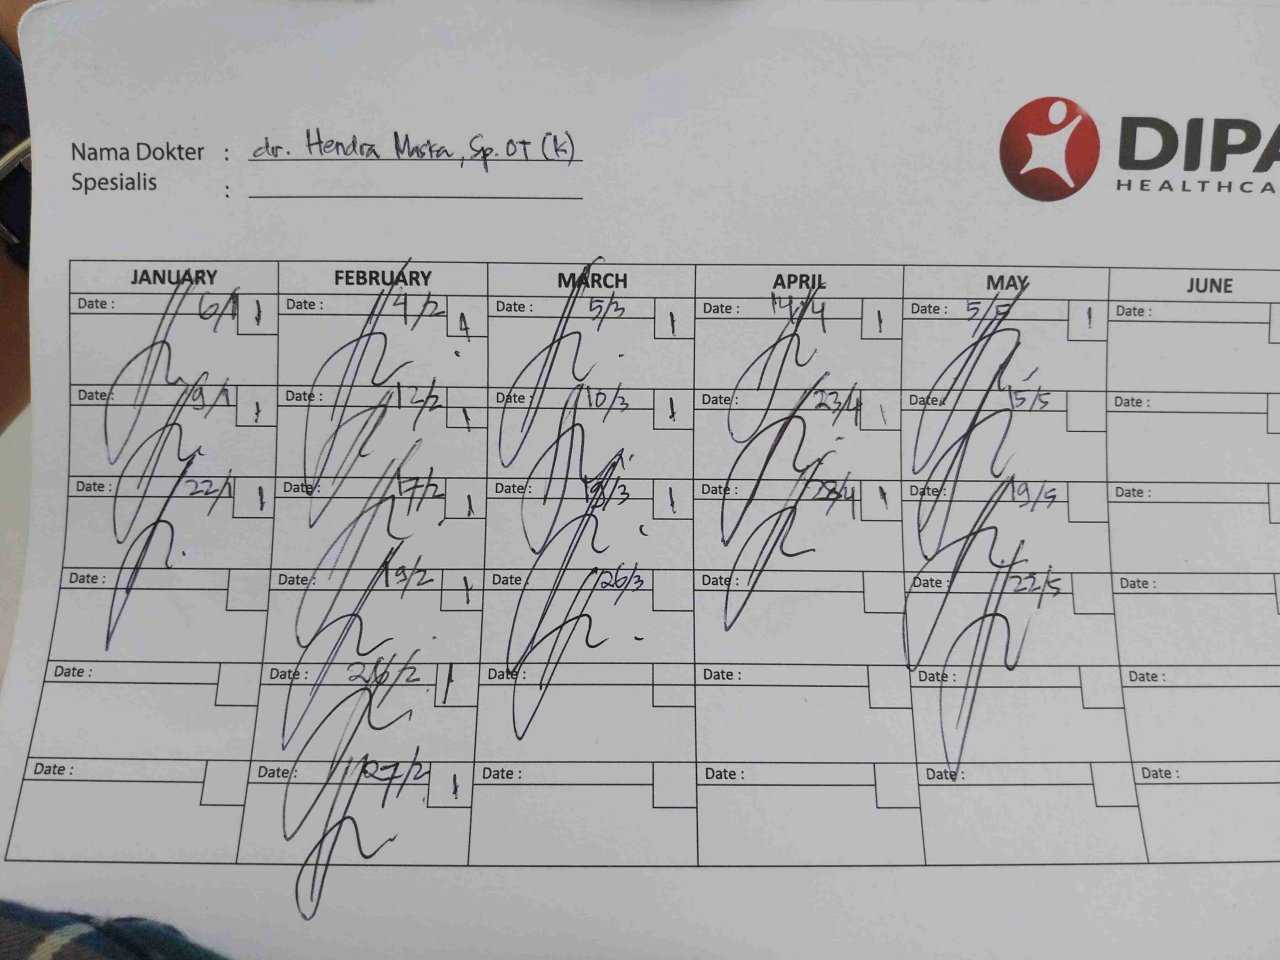 Nama Dokter : dr. Hendra Maska, Sp.OT (K)
Spesialis :
DIPA
HEALTHCA
JANUARY FEBRUARY MARCH APRIL MAY JUNE
Date : 6/1 1 Date : 4/2 1 Date : 5/3 1 Date : 14/4 1 Date : 5/5 1 Date :
Date : 9/1 1 Date : 12/2 1 Date : 10/3 1 Date : 23/4 1 Date : 15/5 Date :
Date : 22/1 1 Date : 17/2 1 Date : 19/3 1 Date : 28/4 1 Date : 19/5 Date :
Date : Date : 19/2 1 Date : 26/3 Date : Date : 22/5 Date :
Date : Date : 26/2 1 Date : Date : Date : Date :
Date : Date : 27/2 1 Date : Date : Date : Date :